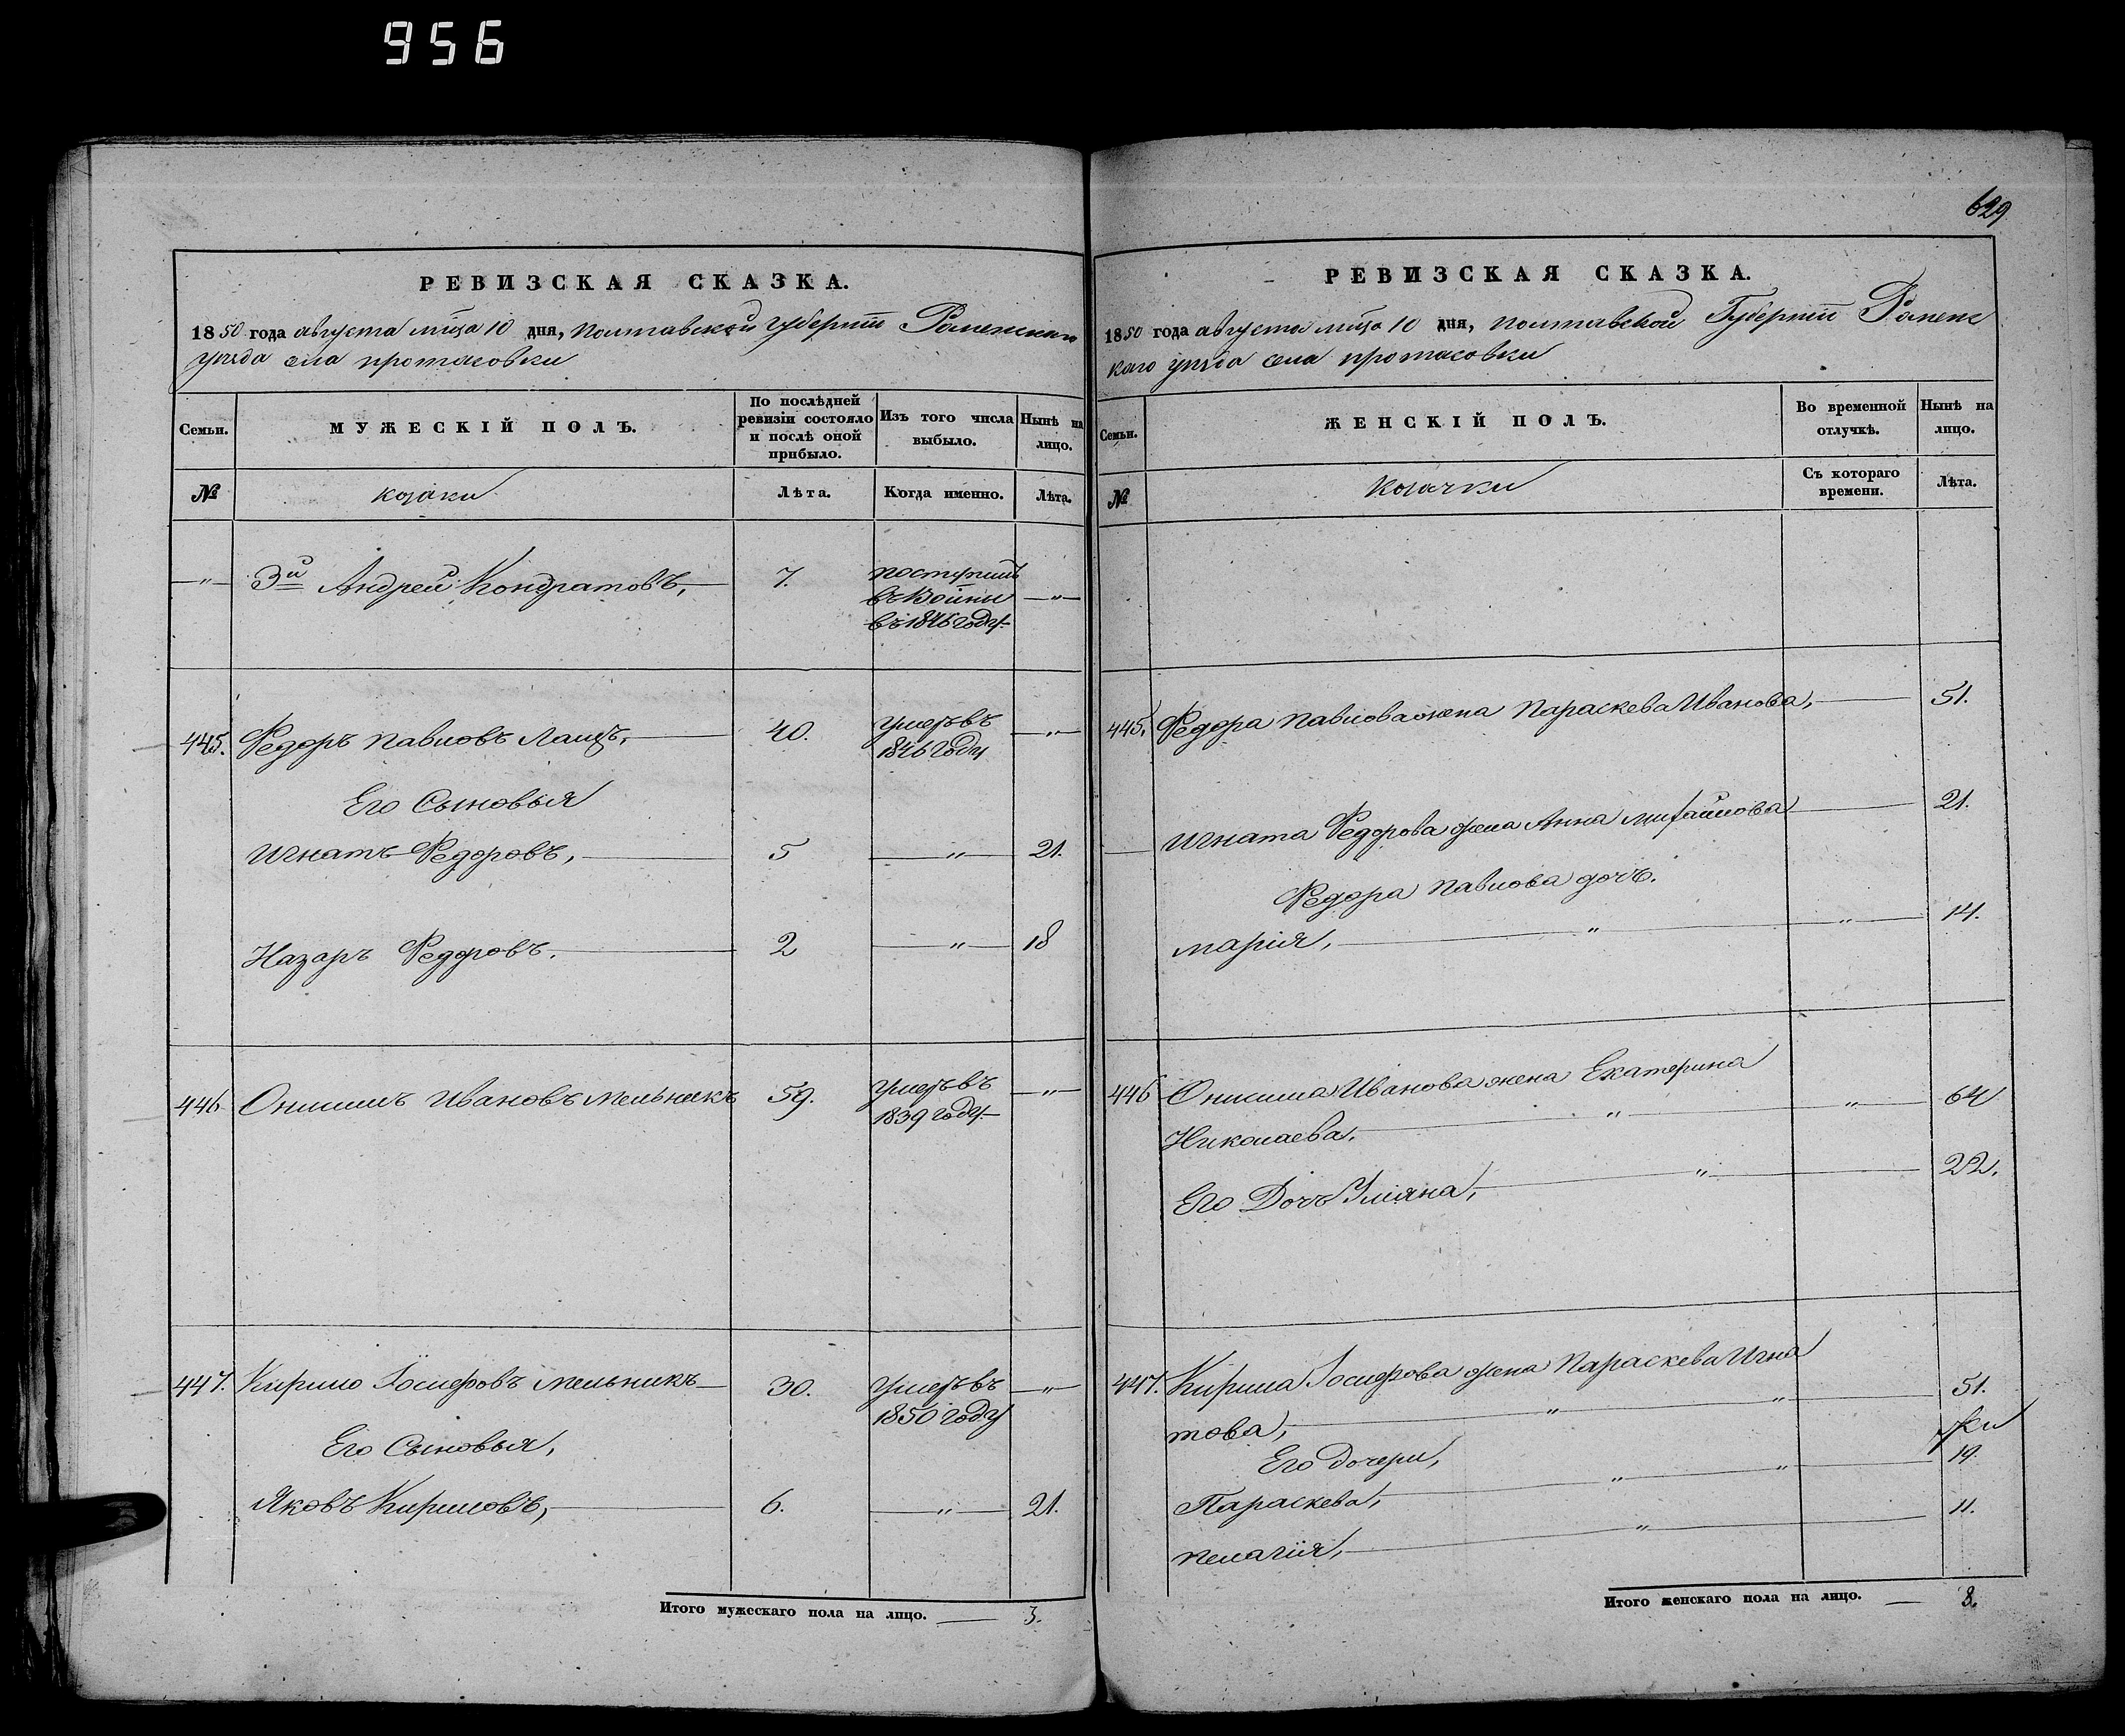 956
629
РЕВИЗСКАЯ СКАЗКА.
1850 года августа мѣца 10 дня, полтавской губерніи Роменскаго
уѣзда села протасовки
Семьи.
МУЖЕСКІЙ ПОЛЪ.
По послѣдней ревизіи состояло и послѣ оной прибыло.
Изъ того числа выбыло.
Нынѣ на лицо.
№
козаки
Лѣта.
Когда именно.
Лѣта.
—„— 3й Андрей Кондратовъ, 7. поступилъ —„—
въ 1846 году.
445. Федоръ павловъ 40. умеръ въ —„—
1846 году
Его Сыновья
Игнатъ Федоровъ, 5 —„— 21.
Назаръ Федоровъ. 2 —„— 18
446. Онисимъ Ивановъ мельникъ 59. умеръ въ —„—
1839 году.
447. Кирило Іосифовъ мельникъ 30. умеръ въ —„—
1850 году
Его Сыновья,
Яковъ Кириловъ, 6. —„— 21.
Итого мужескаго пола на лицо. — 3.
РЕВИЗСКАЯ СКАЗКА.
1850 года августа мѣца 10 дня, полтавской Губерніи Роменс
каго уѣзда села протасовки
Семьи.
ЖЕНСКІЙ ПОЛЪ.
Во временной отлучкѣ.
Нынѣ на лицо.
№
козачки
Съ котораго времени.
Лѣта.
445. Федора павлова жена параскева Иванова, 51.
Игната Федорова жена Анна михайлова 21.
Федора павлова дочь.
марія, „ „ 14.
446 Онисима Иванова жена Екатерина
Николаева. „ „ 64
Его Дочь Уліяна, „ 22.
447. Кирила Іосифова жена параскева Игна
това, „ „ 51.
Его дочери,
Параскева, „ „ 19.
пелагія, „ 11.
Итого женскаго пола на лицо. — 8.